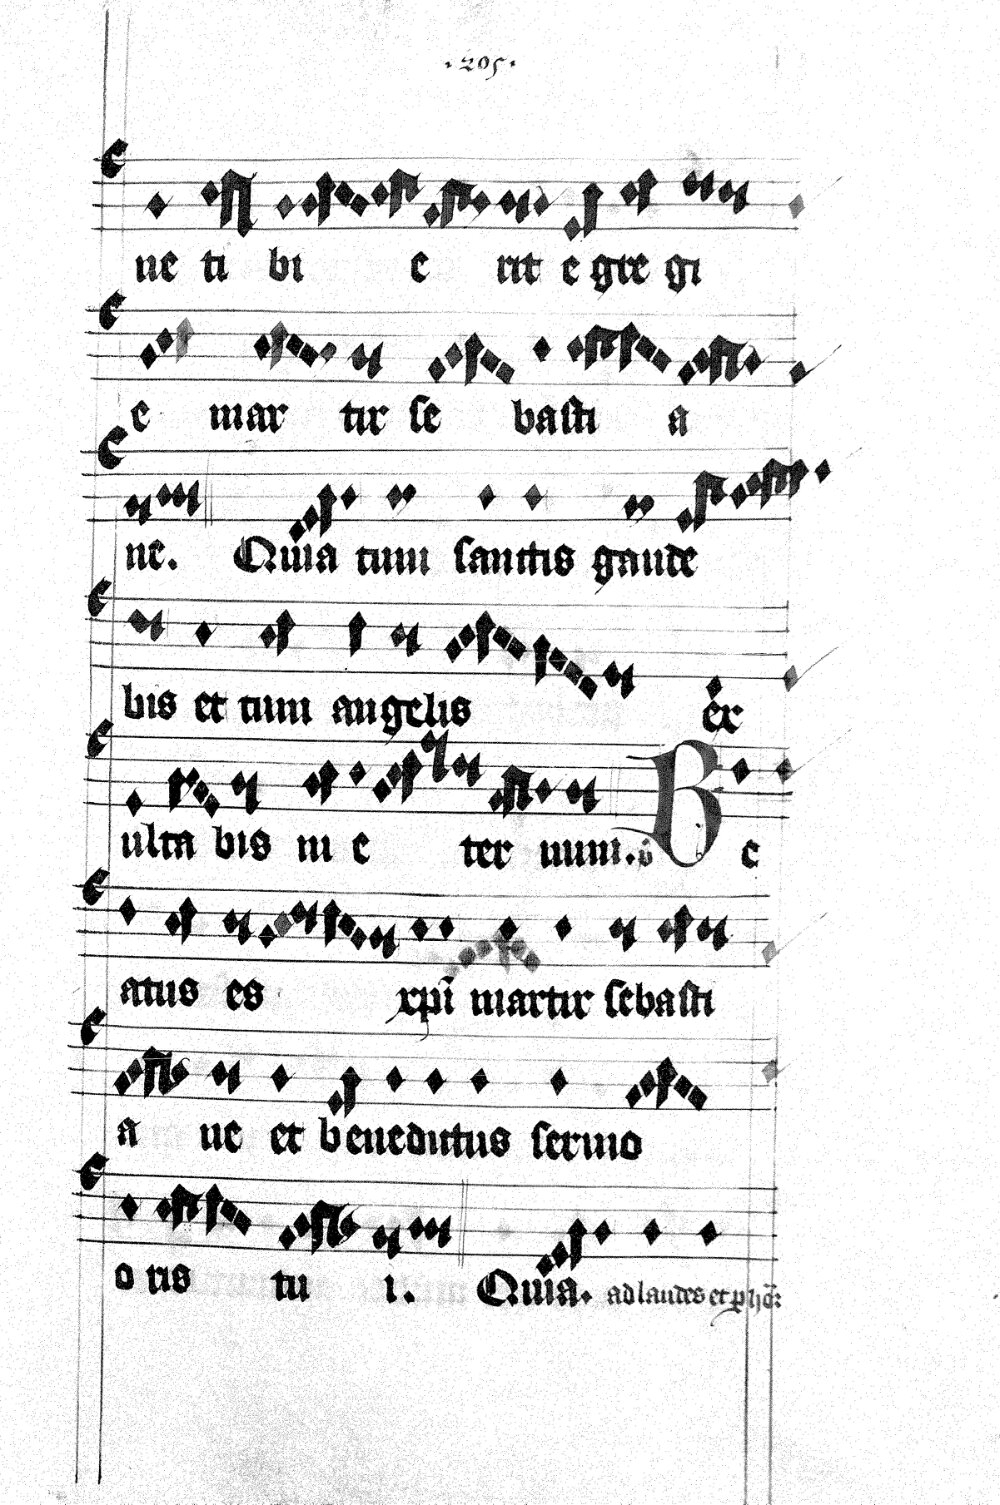 · 205 ·
ne ti bi e rit e gre gi
e mar tir se basti a
ne. Quia cum sanctis gaude
bis et cum angelis ex
ulta bis in e ter num. v̂ B e
atus es xp̄i martir sebasti
a ne et benedictus sermo
o ris tu i. Quia. ad laudes et p hō: